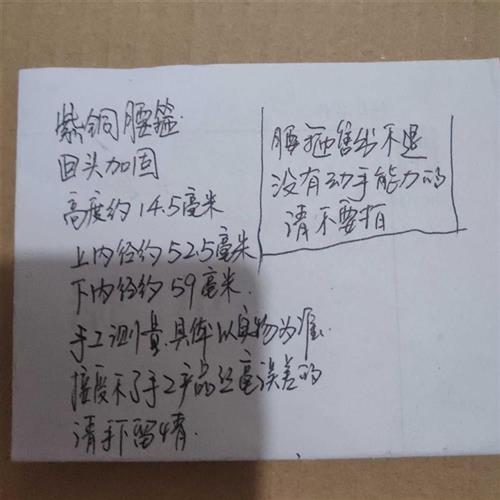 紫铜腰箍
回头加固
高度约14.5毫米
上内经约52.5毫米
下内经约59毫米.
手工测量.具体以实物为准.
接受不了手工产品丝毫误差的
请手下留情.
腰箍售出不退
没有动手能力的
请不要拍